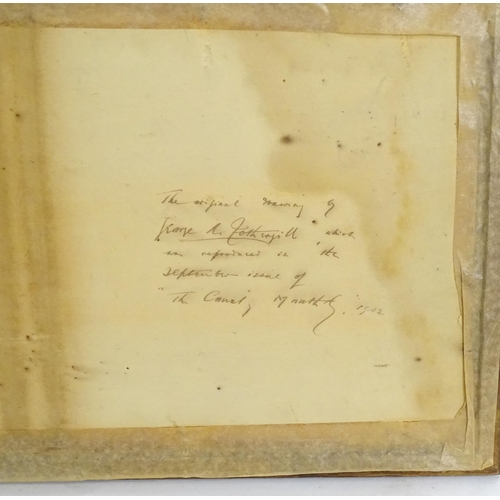 The original drawing by
George A. Fothergill which
was reproduced in the
September issue of
"The County Monthly", 1902